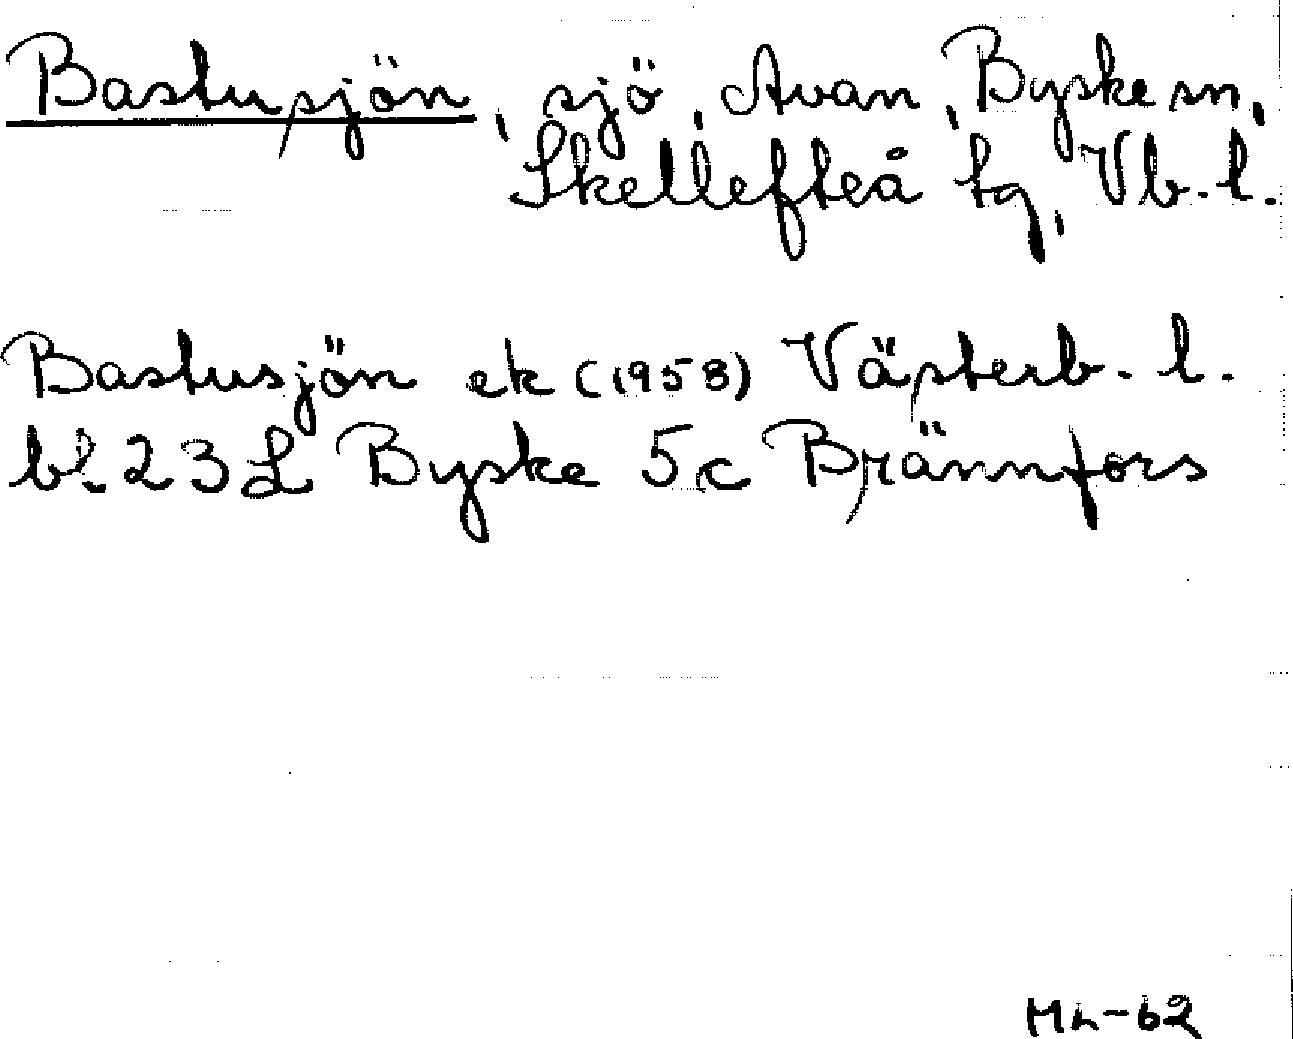 Bastusjön, sjö, Avan, Byske sn,
Skellefteå tg, Vb. l.
Bastusjön ek (1958) Västerb. l.
bl. 23 L Byske 5 c Brännfors
Mn-62